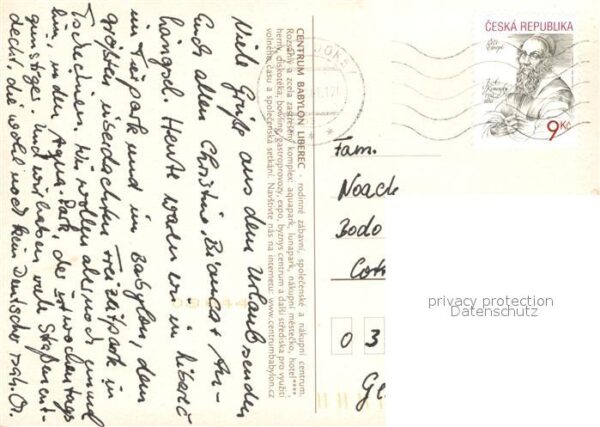 Viele Grüße aus dem Urlaub senden
Euch allen Christine, Bianca +
hangol. Heute waren wir in Liberec
im Tierpark und im Babylon, dem
größten überdachten Freizeitpark in
Tschechien. Wir wollen abends noch einmal
hin, in den Aqua-Park, der ist wochentags
günstiger und wir haben viele Straßen
deckt, die wohl noch kein Deutscher sah.
CENTRUM BABYLON LIBEREC - rodinné zábavní, společenské a nákupní centrum.
Rozsáhlý a zcela zastřešený komplex: aquapark, lunapark, nákupní městečko, hotel****,
herny, diskotéka, bowling, gastroprovozy, expo, byznys centrum a další střediska pro využití
volného času a společenská setkání. Navštivte nás na internetu: www.centrumbabylon.cz
ČESKÁ REPUBLIKA
9 Kč
Fam.
Noack
Bodo
Cott
0 3
privacy protection
Datenschutz